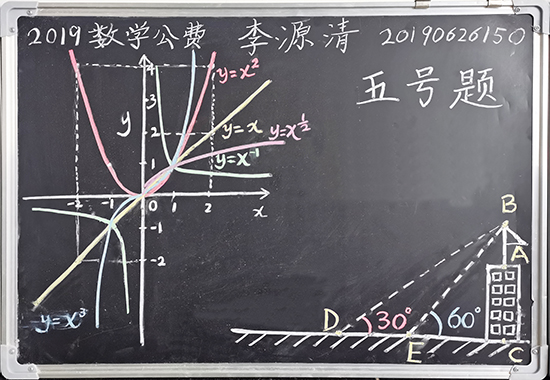 2019 数学公费 李源清 20190626150
五号题
y=x²
y=x
y=x^½
y=x⁻¹
y=x³
y
x
4
3
2
1
-1
-2
-2 -1 0 1 2
B
A
D 30° E 60° C